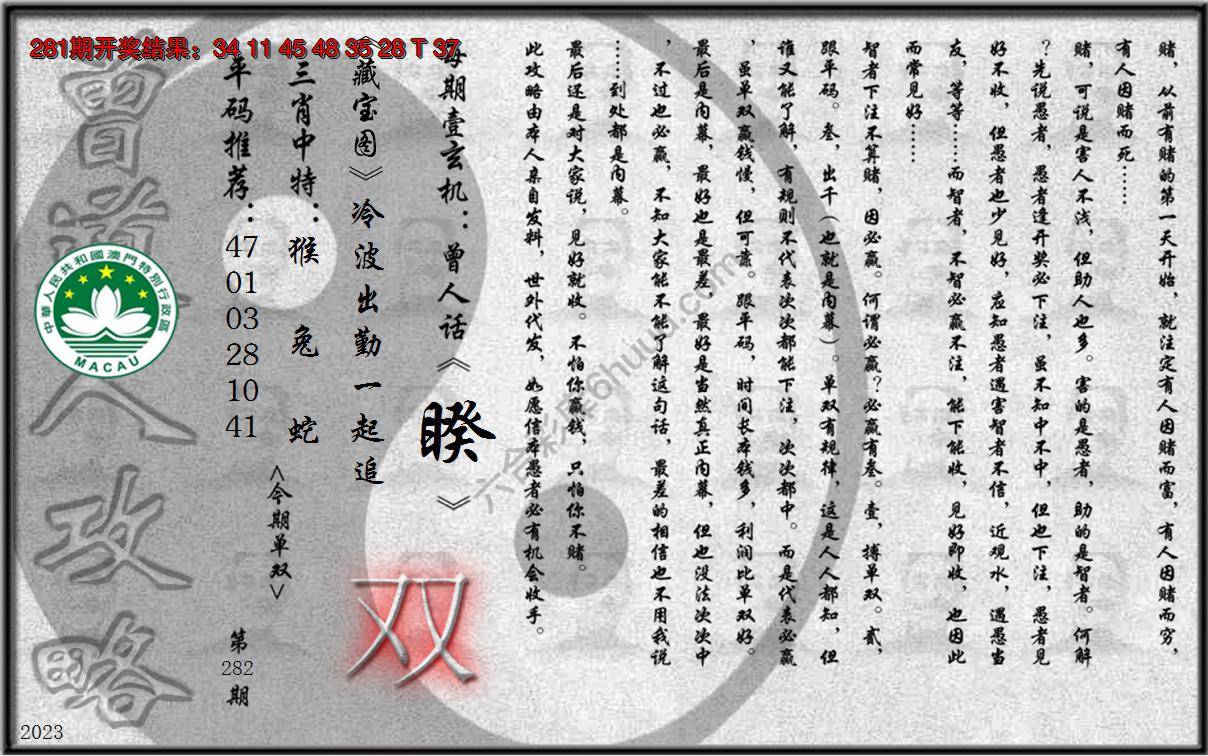 281期开奖结果：34 11 45 48 35 28 T 37
赌，从前有赌的第一天开始，就注定有人因赌而富，有人因赌而穷，
有人因赌而死……
赌，可说是害人不浅，但助人也多。害的是愚者，助的是智者。何解
？先说愚者，愚者逢开奖必下注，虽不知中不中，但也下注，愚者见
好不收，但愚者也少见好，应知愚者遇害智者不信，近观水，遇愚当
友，等等……而智者，不智必赢不注，能下能收，见好即收，也因此
而常见好……
智者下注不算赌，因必赢。何谓必赢？必赢有叁。壹，搏单双。贰，
跟平码。叁，出千（也就是内幕）。单双有规律，这是人人都知，但
谁又能了解，有规则不代表次次都能下注，次次都中。而是代表必赢
，虽单双赢钱慢，但可靠。跟平码，时间长本钱多，利润比单双好。
最后是内幕，最好也是最差，最好是当然真正内幕，但也没法次次中
，不过也必赢，不知大家能不能了解这句话，最差的相信也不用我说
……到处都是内幕。
最后还是对大家说，见好就收。不怕你赢钱，只怕你不赌。
此攻略由本人亲自发料，世外代发，如愿信本愚者必有机会收手。
每期壹玄机：曾人话《睽》
《藏宝图》冷波出勤一起追
双
三肖中特：猴 兔 蛇
<今期单双>
平码推荐：47 01 03 28 10 41
第282期
曾道人攻略
中華人民共和國澳門特別行政區
MACAU
六合彩库6huuu.com
2023